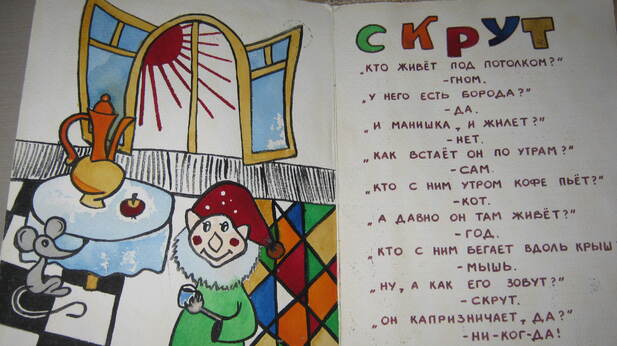 СКРУТ
„КТО ЖИВЁТ ПОД ПОТОЛКОМ?"
-ГНОМ.
„У НЕГО ЕСТЬ БОРОДА?"
-ДА.
„И МАНИШКА, И ЖИЛЕТ?"
-НЕТ.
„КАК ВСТАЁТ ОН ПО УТРАМ?"
-САМ.
„КТО С НИМ УТРОМ КОФЕ ПЬЁТ?"
-КОТ.
„А ДАВНО ОН ТАМ ЖИВЁТ?"
-ГОД.
„КТО С НИМ БЕГАЕТ ВДОЛЬ КРЫШ
-МЫШЬ.
„НУ, А КАК ЕГО ЗОВУТ?"
-СКРУТ.
„ОН КАПРИЗНИЧАЕТ, ДА?"
-НИ-КОГ-ДА!